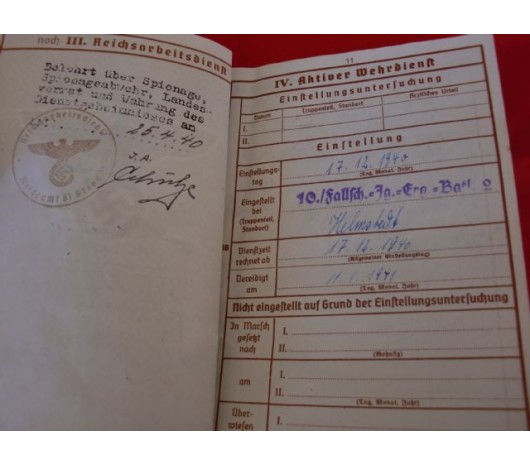 noch III. Reichsarbeitsdienst
Belehrt über Spionage,
Spionageabwehr, Landes-
verrat und Wahrung des
Dienstgeheimnisses an
25.4.40
J.A.
Schulze
11
IV. Aktiver Wehrdienst
Einstellungsuntersuchung
Datum
Truppenteil, Standort
Ärztliches Urteil
I.
II.
Einstellung
Einstellungs-
tag
17. 12. 1940
(Tag, Monat, Jahr)
Eingestellt
bei
(Truppenteil,
Standort)
10./Fallsch.-Jg.-Erg.-Batl. 2
Helmstedt
Dienstzeit
rechnet ab
17. 12. 1940
Vereidigt
am
11. 1. 1941
(Tag, Monat, Jahr)
Nicht eingestellt auf Grund der Einstellungsuntersuchung
In Marsch
gesetzt
nach
I.
II.
am
I.
II.
(Tag, Monat, Jahr)
Über-
wiesen
I.